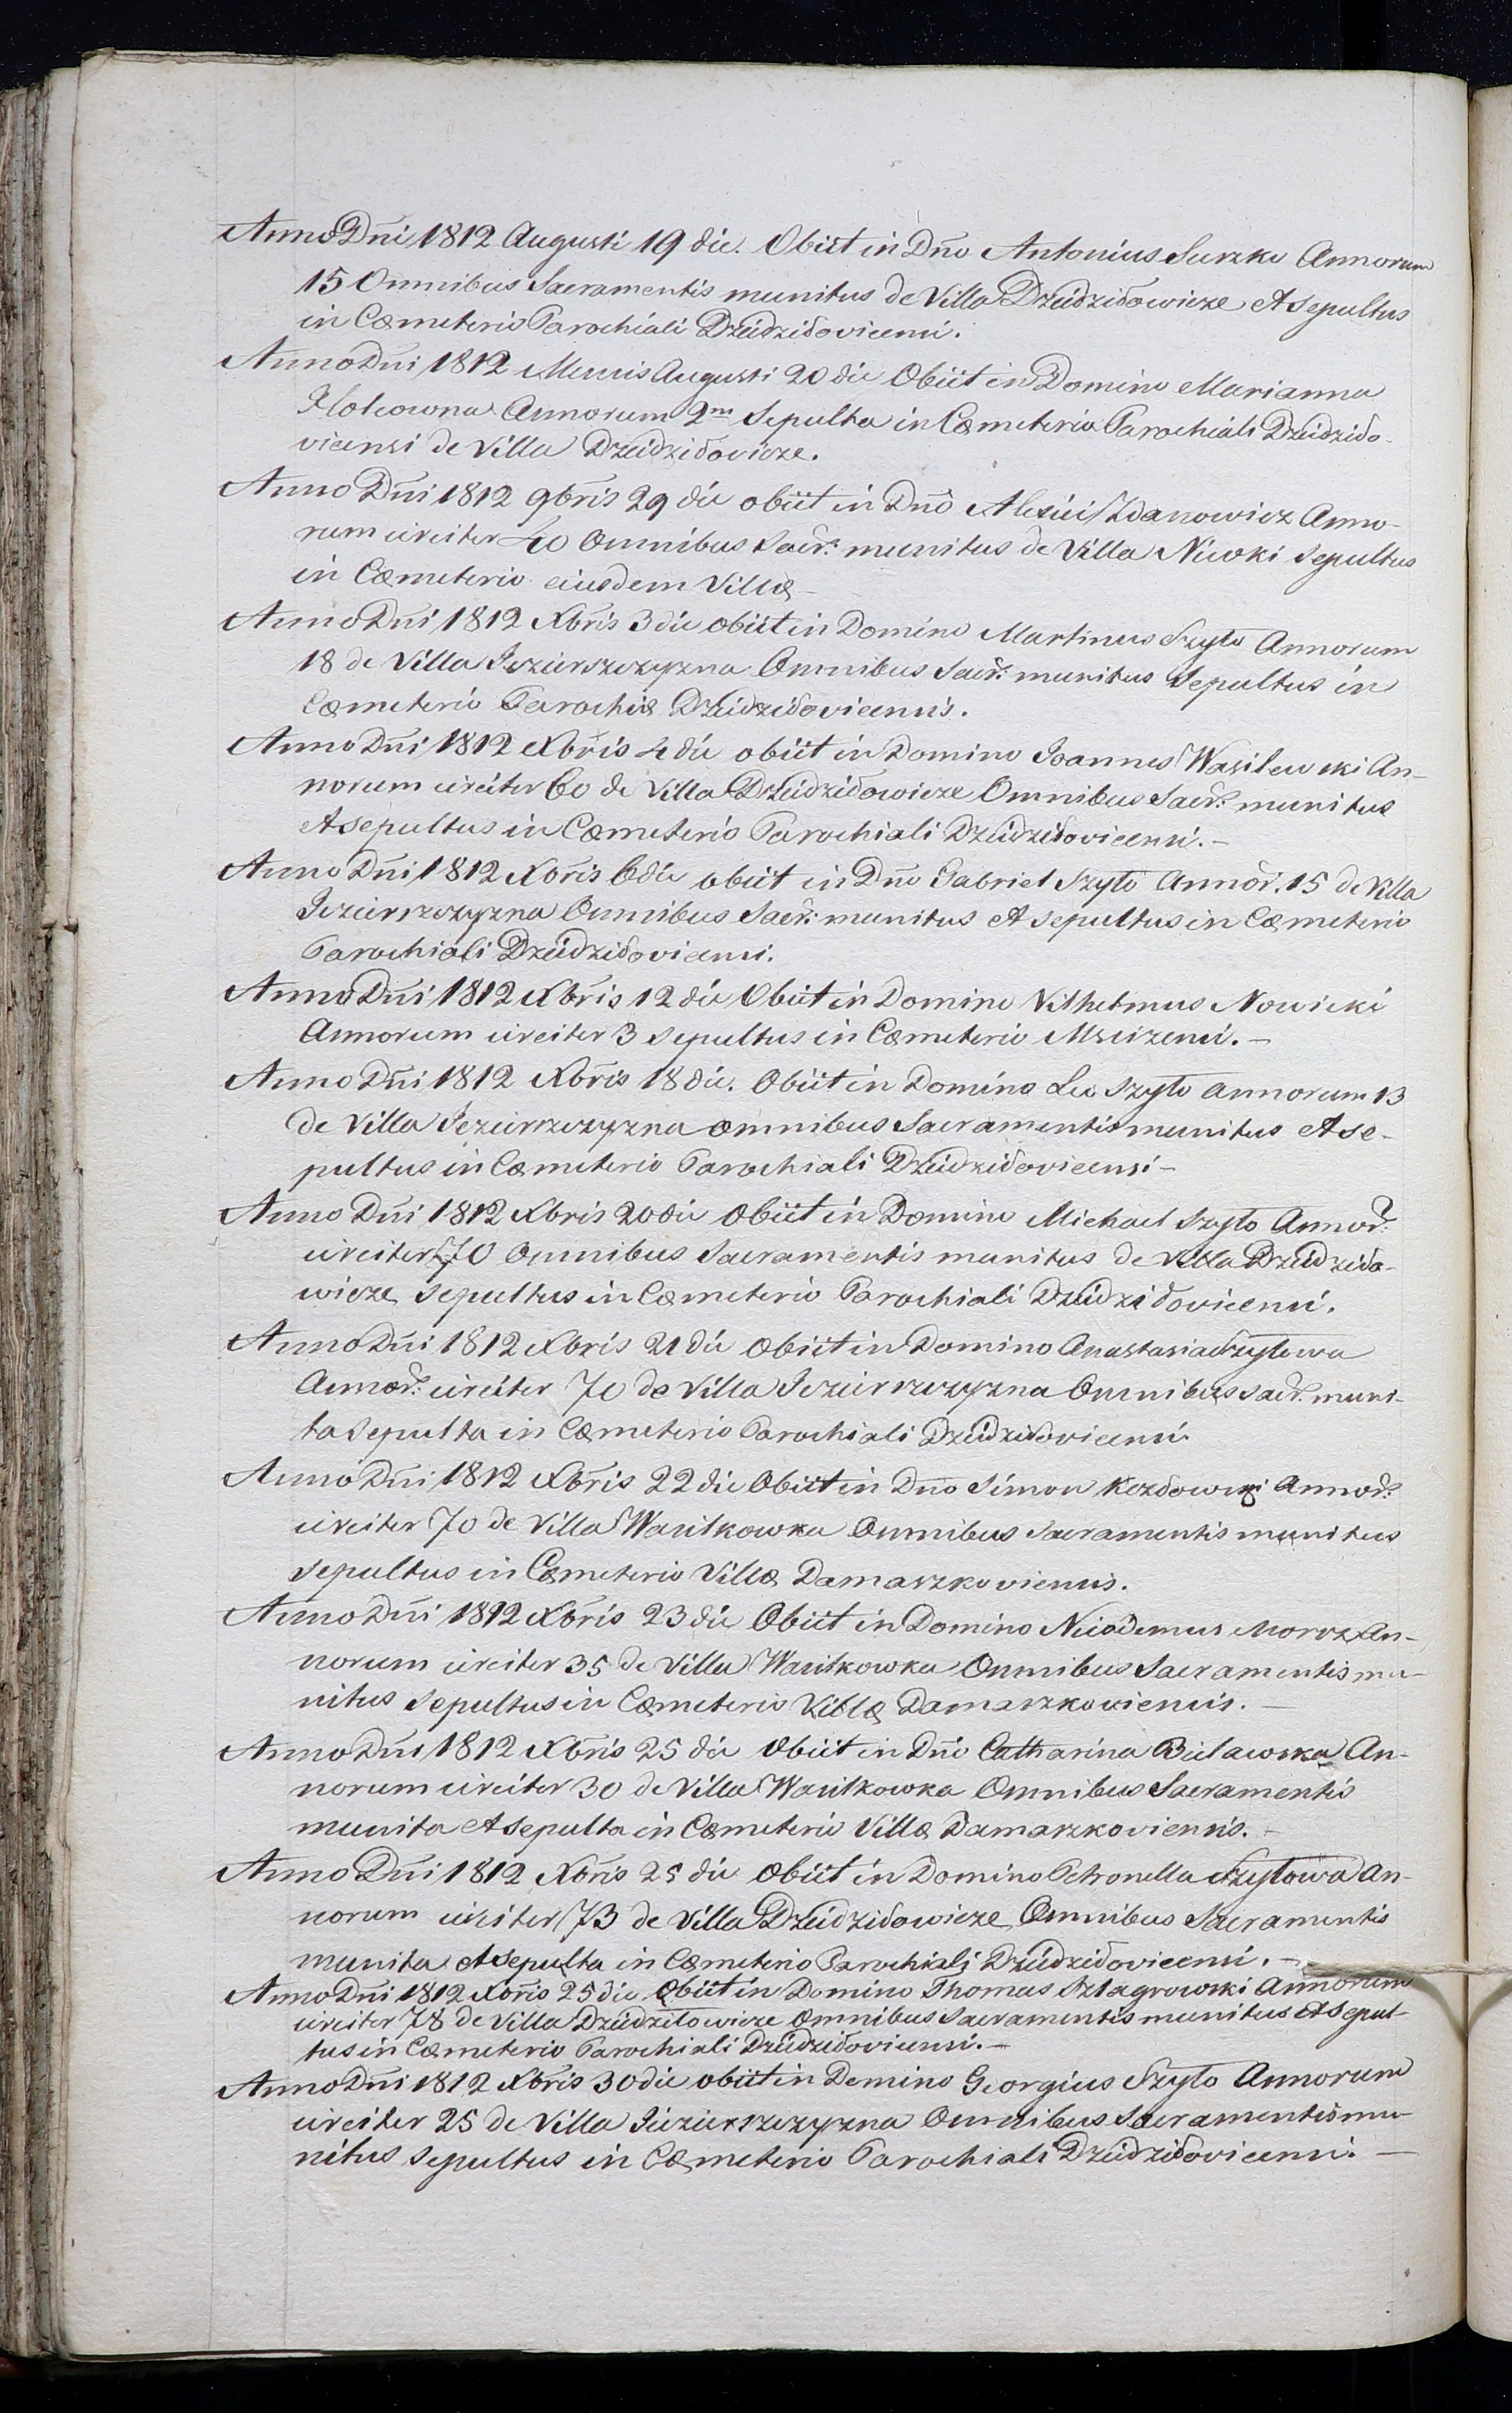 Anno Dn̄i 1812 Augusti 19 die. Obiit in Dn̄o Antonius Surzko Annorum
15 Omnibus Sacramentis munitus de Villa Dziedzidowicze et sepultus
in Cœmeterio Parochiali Dziedzidovicensi.
Anno Dn̄i 1812 Mensis Augusti 20 die Obiit in Domino Marianna
Annorum 2m Sepulta in Cœmeterio Parochiali Dziedzido-
vicensi de Villa Dziedzidovicze.
Anno Dn̄i 1812 9bris 29 die obiit in Dn̄o Alexius Zdanowicz Anno-
rum circiter 40 Omnibus Sacr: munitus de Villa Niwki Sepultus
in Cœmeterio eiusdem Villæ –
Anno Dn̄i 1812 Xbris 3 die obiit in Domino Martinus Szyło Annorum
18 de Villa Jezierszczyzna Omnibus Sacr: munitus Sepultus in
Cœmeterio Parochiæ Dziedzidovicensis.
Anno Dn̄i 1812 Xbris 4 die obiit in Domino Joannes Wasilewski An-
norum circiter 60 de Villa Dziedzidowicze Omnibus Sacr: munitus
et sepultus in Cœmeterio Parochiali Dziedzidovicensi. –
Anno Dn̄i 1812 Xbris 6 die obiit in Dn̄o Gabriel Szyło Annor. 15 de Villa
Jezierszczyzna Omnibus Sacr: munitus et sepultus in Cœmeterio
Parochiali Dziedzidovicensi.
Anno Dn̄i 1812 Xbris 12 die Obiit in Domino Vilhelmus Nowicki
Annorum circiter 3 sepultus in Cœmeterio Mscizensi. –
Anno Dn̄i 1812 Xbris 18 die. Obiit in Domino Leo Szyło annorum 13
de Villa Jezierszczyzna omnibus Sacramentis munitus et se-
pultus in Cœmeterio Parochiali Dziedzidovicensi –
Anno Dn̄i 1812 Xbris 20 die Obiit in Domino Michael Szyło Annor:
circiter 70 Omnibus Sacramentis munitus de Villa Dziedzido-
wicze sepultus in Cœmeterio Parochiali Dziedzidovicensi.
Anno Dn̄i 1812 Xbris 21 die Obiit in Domino Anastasia Szyłowa
Annor: circiter 70 de Villa Jezierszczyzna Omnibus sacr. muni-
ta Sepulta in Cœmeterio Parochiali Dziedzidovicensi
Anno Dn̄i 1812 Xbris 22 die Obiit in Dn̄o Simon Kozłowski Annor:
circiter 70 de Villa Wasilkowka Omnibus Sacramentis munitus
sepultus in Cœmeterio Villæ Damaszkoviensis.
Anno Dn̄i 1812 Xbris 23 die Obiit in Domino Nicodemus Moroz An-
norum circiter 35 de Villa Wasilkowka Omnibus Sacramentis mu-
nitus Sepultus in Cœmeterio Villæ Damaszkoviensis. –
Anno Dn̄i 1812 Xbris 25 die Obiit in Dn̄o Catharina Bielawska An-
norum circiter 30 de Villa Wasilkowka Omnibus Sacramentis
munita et sepulta in Cœmeterio Villæ Damaszkoviensis. –
Anno Dn̄i 1812 Xbris 25 die Obiit in Domino Petronella Szyłowa An-
norum circiter 73 de Villa Dziedzidowicze Omnibus Sacramentis
munita et sepulta in Cœmeterio Parochiali Dziedzidovicensi. –
Anno Dn̄i 1812 Xbris 25 die Obiit in Domino Thomas Szlagrowski Annorum
circiter 78 de Villa Dziedziłowicze Omnibus Sacramentis munitus et Sepul-
tus in Cœmeterio Parochiali Dziedzidovicensi. –
Anno Dn̄i 1812 Xbris 30 die obiit in Domino Georgius Szyło Annorum
circiter 25 de Villa Jezierszczyzna Omnibus Sacramentis mu-
nitus Sepultus in Cœmeterio Parochiali Dziedzidovicensi. –